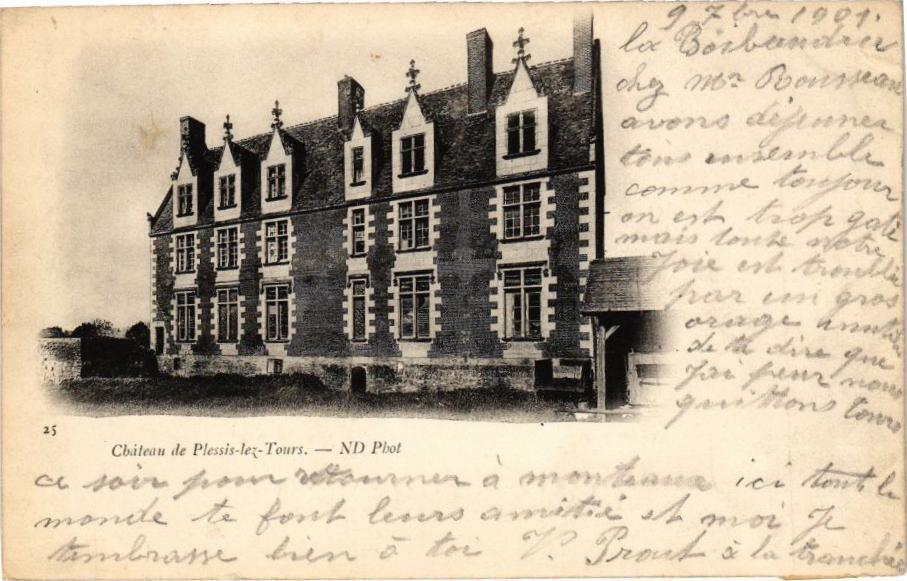 9 7bre 1901.
la
chez Mr Rousseau
avons déjeuner
tous ensemble
comme toujour
on est trop gaté
mais toute notre
Joie est troublée
par un gros
orage inutile
de ta dire que
J'ai peur nous
quittons tours
25
Château de Plessis-lez-Tours. — ND Phot
ce soir pour retourner à monteaux ici tout le
monde te font leurs amitié et moi Je
t'embrasse bien à toi V. Prout à la tranchée